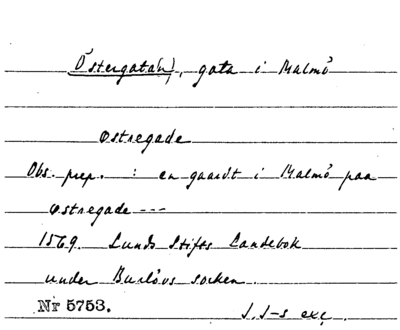 Östergata(n), gata i Malmö
Østregade
Obs. prep. : en gaardt i Malmö paa
østregade ---
1569. Lunds Stifts Landebok
under Burlövs socken.
Nr 5753. J. J-s exc.